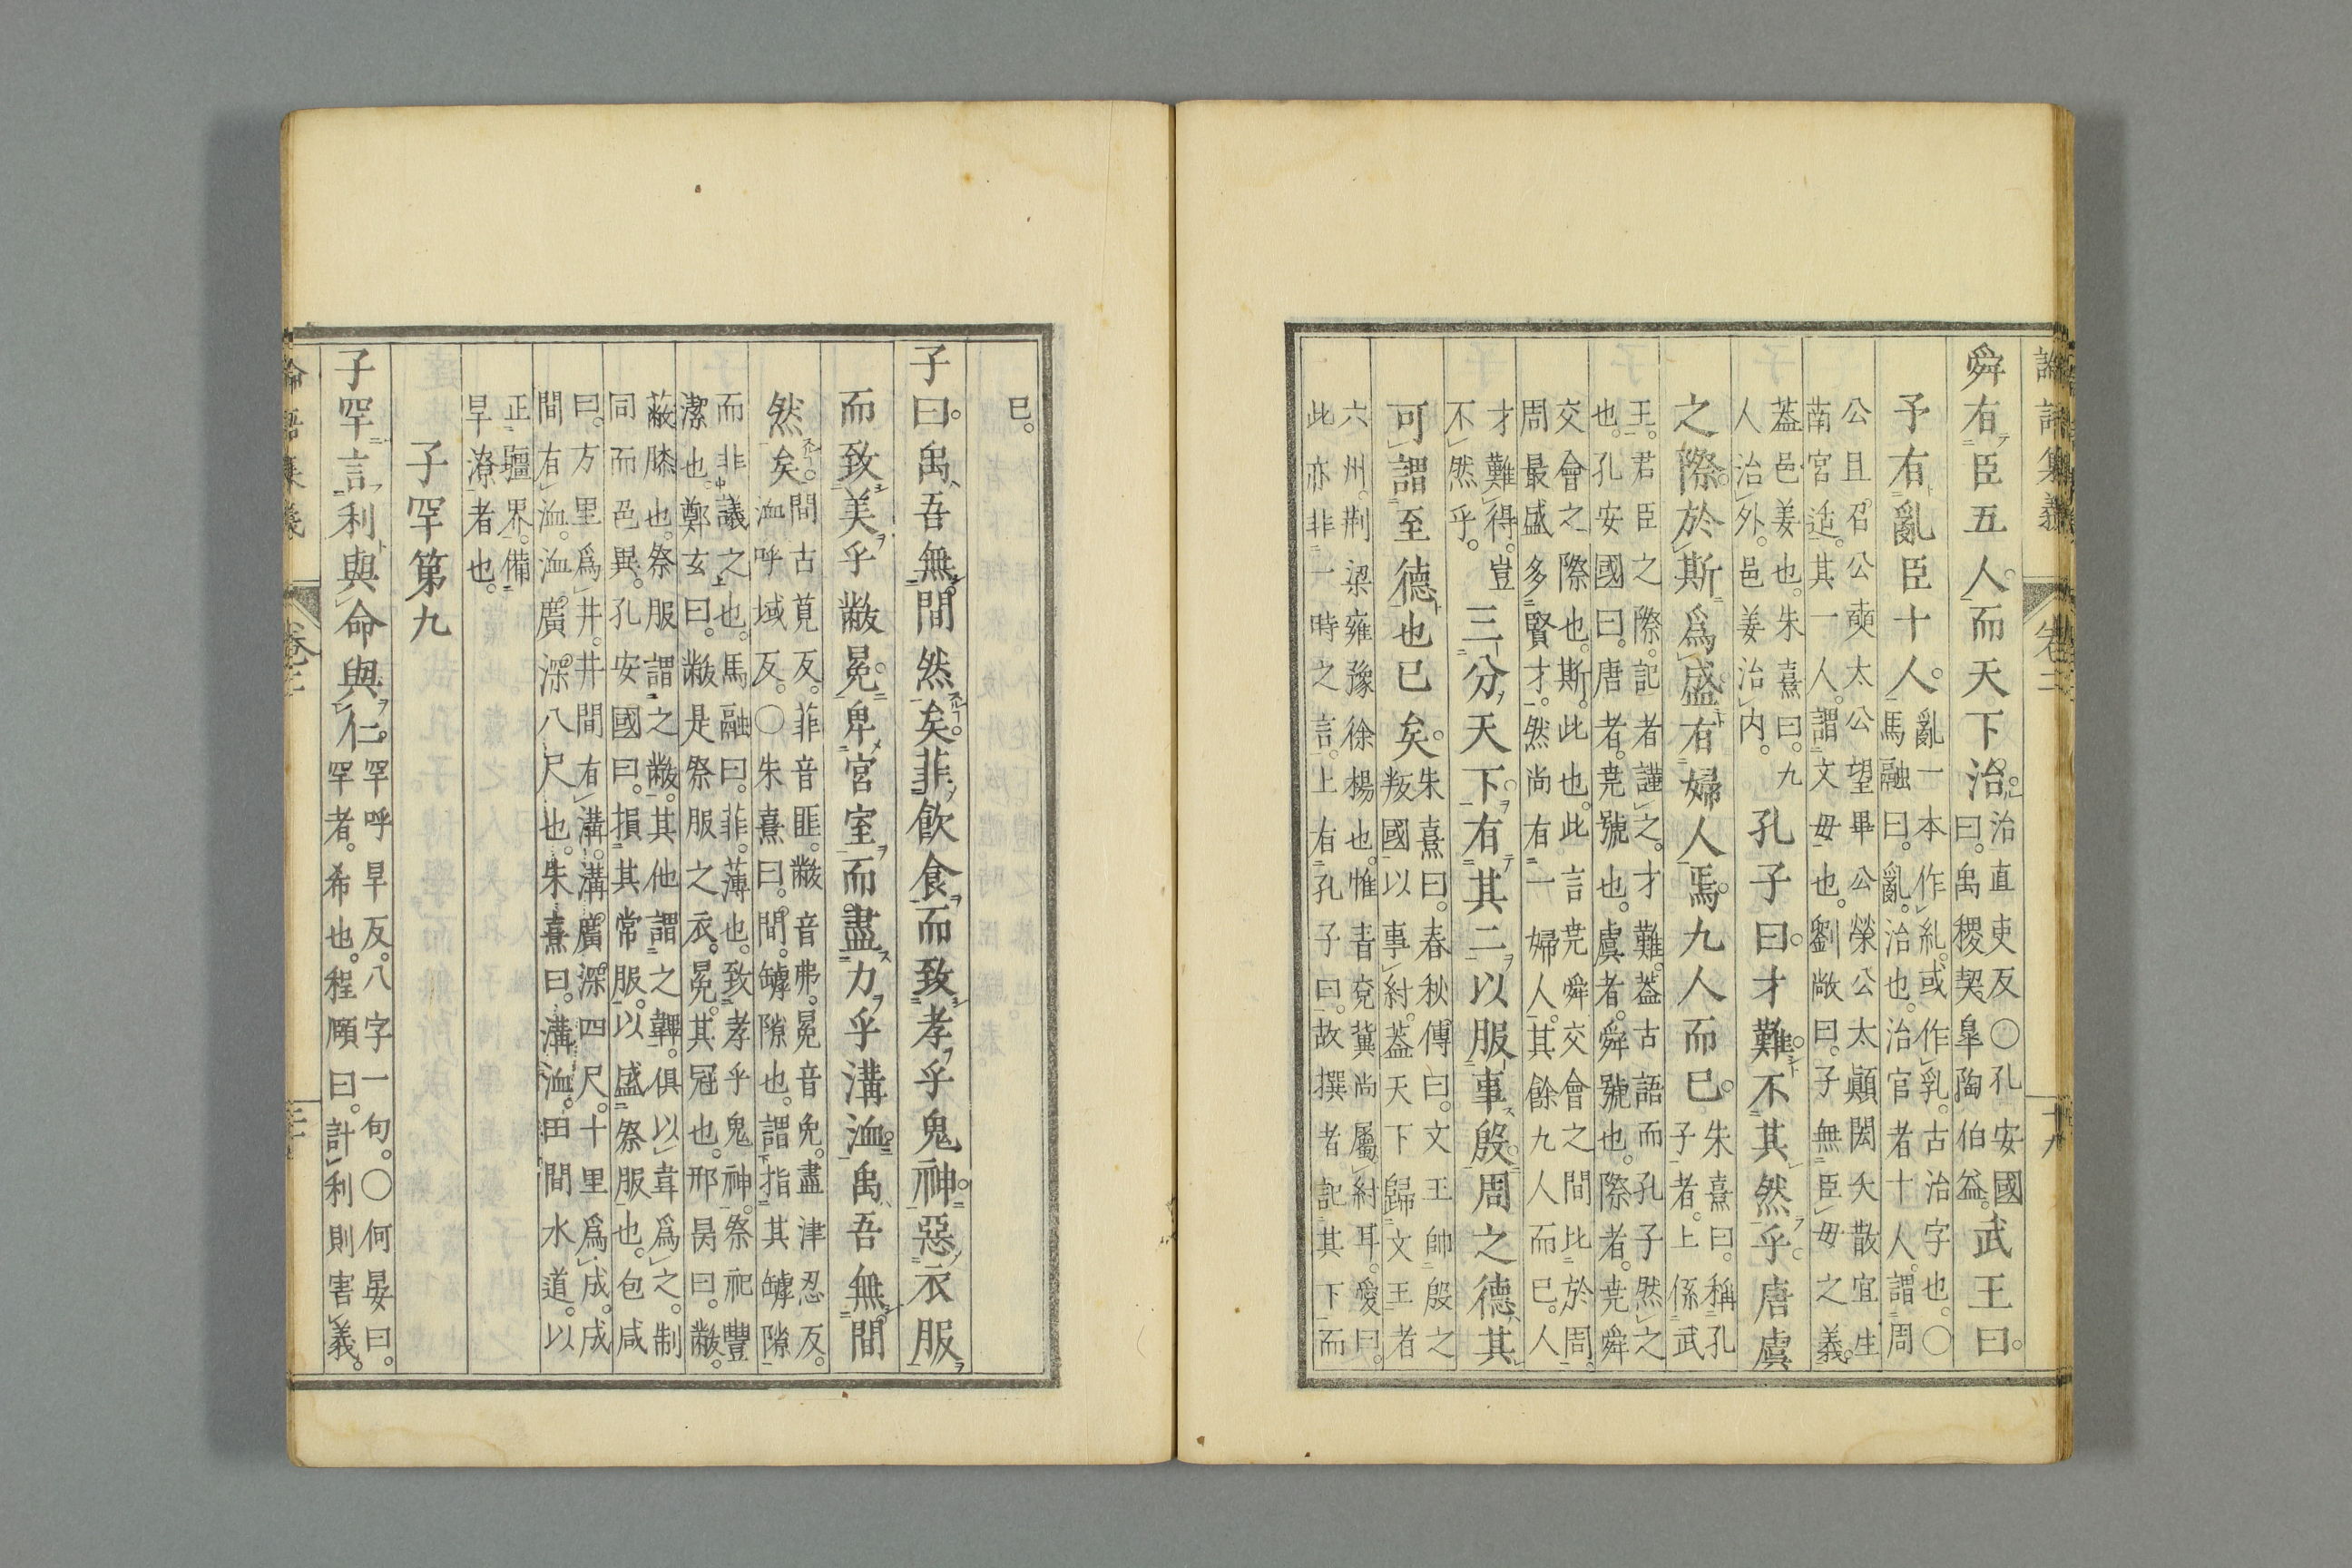 論語集義 卷二 十九
舜有臣五人。而天下治。治直吏反○孔安國曰。禹稷契皐陶伯益。武王曰。
予有亂臣十人。亂一本作乿。或作乳。古治字也。○馬融曰。亂。治也。治官者十人。謂周
公且。召公奭太公望畢公榮公太顚閎夭散宜生南宮适。其一人。謂文毋也。劉敞曰。子無臣毋之義。
蓋邑姜也。朱熹曰。九人治外。邑姜治内。孔子曰。才難。不其然乎。唐虞
之際。於斯爲盛。有婦人焉。九人而已。朱熹曰。稱孔子者。上係武
王。君臣之際。記者謹之。才難。蓋古語而孔子然之也。孔安國曰。唐者。尭號也。虞者。舜號也。際者。尭舜
交會之際也。斯。此也。此言尭舜交會之間比於周。周最盛多賢才。然尚有一婦人。其餘九人而已。人
才難得。豈不然乎。三分天下。有其二。以服事殷。周之德。其
可謂至德也已矣。朱熹曰。春秋傳曰。文王帥殷之叛國以事紂。蓋天下歸文王者
六州。荆梁雍豫徐楊也。惟青兗冀尚屬紂耳。愛曰。此亦非一時之言。上有孔子曰。故撰者記其下而
已。
子曰。禹吾無間然矣。菲飮食。而致孝乎鬼神。惡衣服。
而致美乎黻冕。卑宮室。而盡力乎溝洫。禹吾無間
然矣。間古莧反。菲音匪。黻音弗。冕音免。盡津忍反。洫呼域反。○朱熹曰。間。罅隙也。謂指其罅隙
而非議之也。馬融曰。菲。薄也。致孝乎鬼神。祭祀豐潔也。鄭玄曰。黻是祭服之衣。冕。其冠也。邢昺曰。黻。
蔽膝也。祭服謂之黻。其他謂之韠。俱以韋爲之。制同而色異。孔安國曰。損其常服。以盛祭服也。包咸
曰。方里爲井。井間有溝。溝廣深四尺。十里爲成。成間有洫。洫廣深八尺也。朱熹曰。溝洫。田間水道。以
正疆界。備旱潦者也。
子罕第九
子罕言利與命與仁。罕呼旱反。八字一句。○何晏曰。罕者。希也。程頤曰。計利則害義。
論語集義 卷二